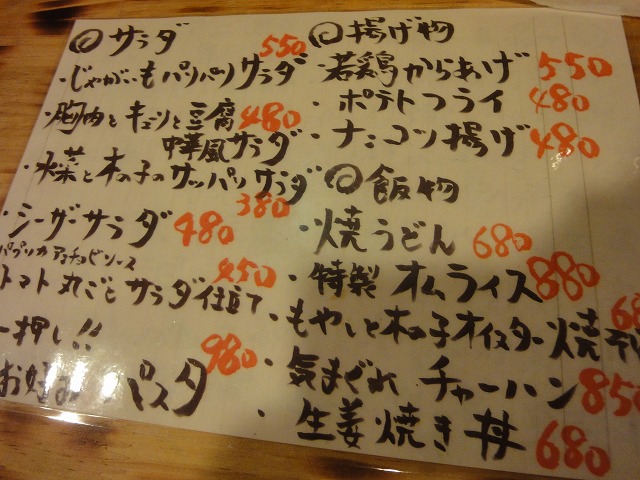 ◎ サラダ
550
・じゃがいもパリパリサラダ
・胸肉とキュウリと豆腐 480
中華風サラダ
・水菜と木の子のサッパリサラダ
380
・シーザーサラダ 480
パプリカアンチョビソース
450
トマト丸ごとサラダ仕立て
一押し!!
980
お好み パスタ
◎ 揚げ物
・若鶏からあげ 550
・ポテトフライ 480
・ナンコツ揚げ 480
◎ 飯物
・焼うどん 680
・特製 オムライス 880
・もやしと木の子オイスター焼そば
・気まぐれ チャーハン 850
・生姜焼き丼 680